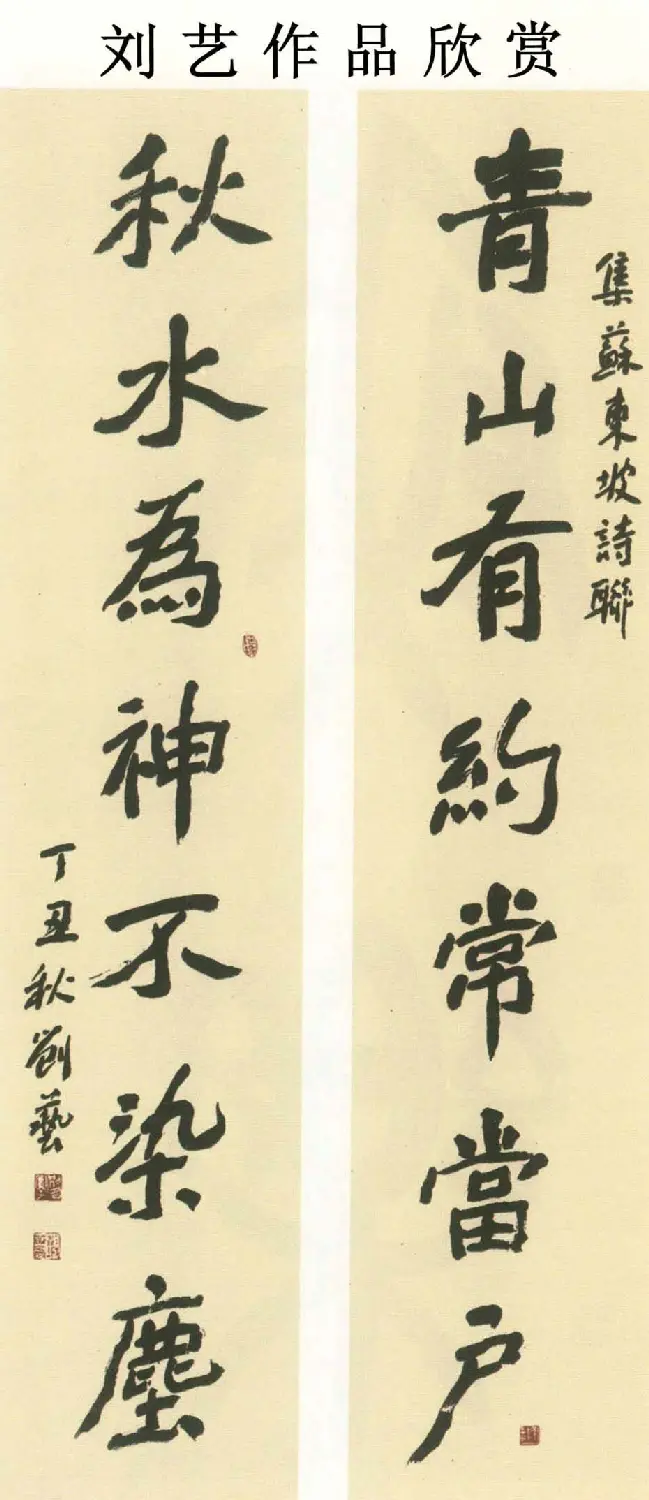 刘艺作品欣赏
集蘇東坡詩聯
青山有約常當户
秋水為神不染塵
丁丑秋劉藝